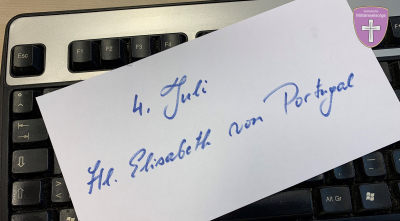 Esc
F1
F2
F3
F4
4. Juli
Hl. Elisabeth von Portugal
Alt Gr